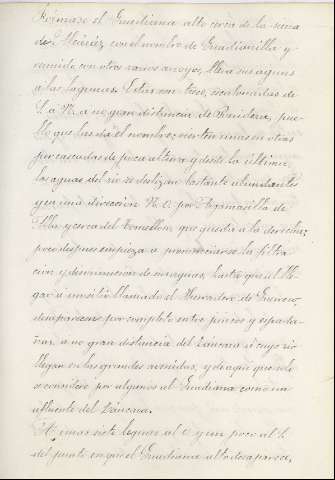 Fórmase el Guadiana alto cerca de la sierra
de Alcaráz con el nombre de Guadianilla y
reunido con otros varios arroyos, lleva sus aguas
á las lagunas. Estas son trece, escalonadas de
S. á N. a no gran distancia de Ruidera, pue-
blo que las dá el nombre; vierten unas en otras
por cascadas de poca altura y desde la última
las aguas del rio se deslizan bastante abundantes
y en una direccion N. O. por Argamasilla de
Alba y cerca del Tomelloso, que queda a la derecha;
poco despues empieza a pronunciarse la filtra
cion y disminucion de sus aguas, hasta que al lle-
gar a un sitio llamado el Herradero de Guerrero,
desaparecen por completo entre juncos y espada-
ñas, a no gran distancia del Záncara á cuyo rio
llegan en las grandes avenidas, y de aqui que solo
se considere por algunos al Guadiana como un
afluente del Záncara.
A unas siete leguas al O. y un poco al S.
del punto en que el Guadiana alto desaparece,